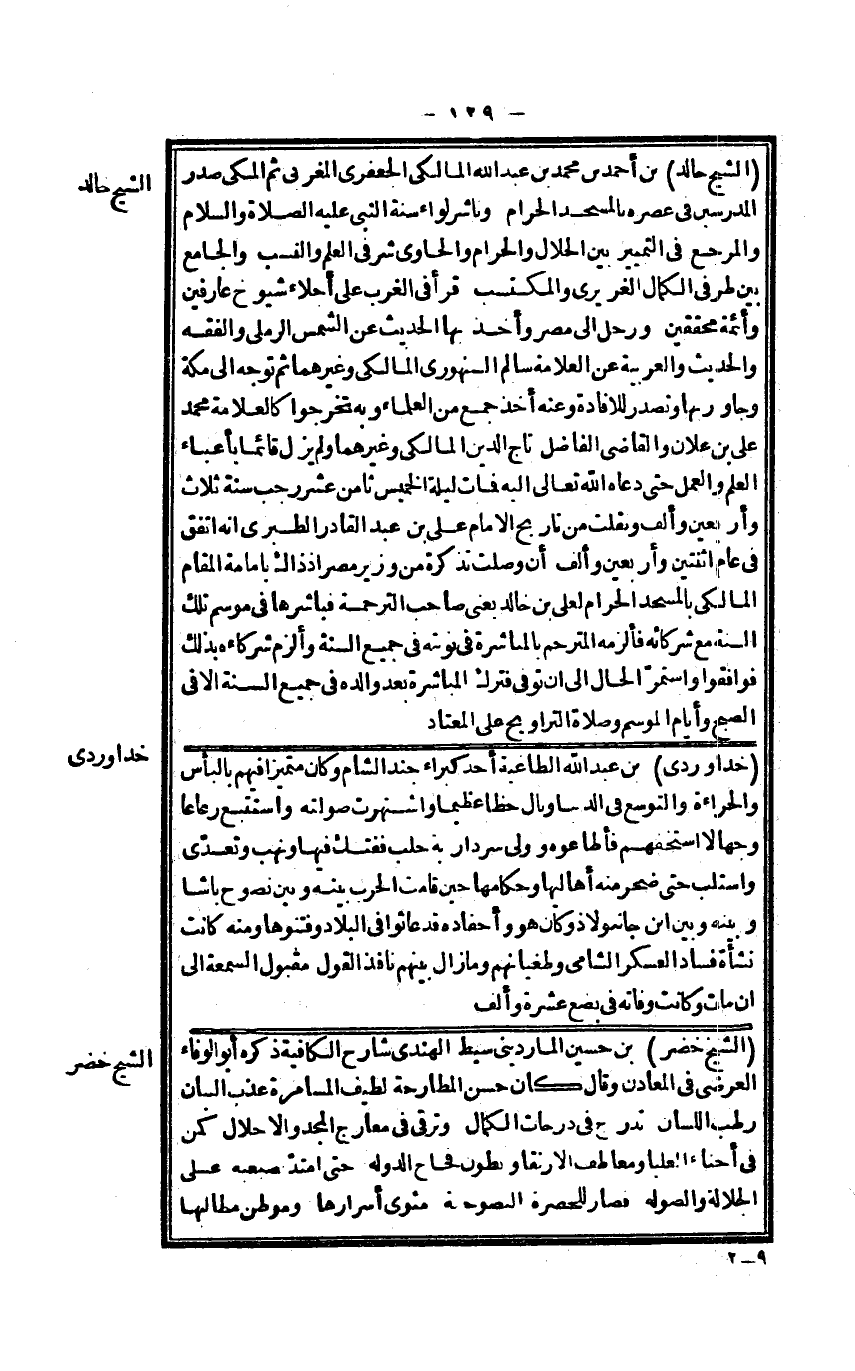 - ١٢٩ -
الشيخ خالد
(الشيخ خالد) بن أحمد بن محمد بن عبد الله المالكي الجعفري المغربي ثم المكي صدر
المدرسين في عصره بالمسجد الحرام وناشر لواء سنة النبي عليه الصلاة والسلام
والمرجع في التمييز بين الحلال والحرام والحاوي شرفي العلم والنسب والجامع
بين طرفي الكمال الغريزي والمكتسب قرأ في الغرب على أجلاء شيوخ عارفين
وأئمة محققين ورحل الى مصر وأخذ بها الحديث عن الشمس الرملي والفقه
والحديث والعربية عن العلامة سالم السنهوري المالكي وغيرهما ثم توجه الى مكة
وجاور بها وتصدر للافادة وعنه أخذ جمع من العلماء وبه تخرجوا كالعلامة محمد
على بن علان والقاضي الفاضل تاج الدين المالكي وغيرهما ولم يزل قائما بأعباء
العلم والعمل حتى دعاه الله تعالى اليه فمات ليلة الخميس ثامن عشر رجب سنة ثلاث
وأربعين وألف ونقلت من تاريخ الامام على بن عبد القادر الطبري انه اتفق
في عام اثنتين وأربعين وألف أن وصلت تذكرة من وزير مصر اذ ذاك بامامة المقام
المالكي بالمسجد الحرام لعلي بن خالد يعني صاحب الترجمة فباشرها في موسم تلك
السنة مع شركائه فألزمه المترجم بالمباشرة في نوبته في جميع السنة وألزم شركاءه بذلك
فوافقوا واستمرّ الحال الى ان توفي فترك المباشرة بعد والده في جميع السنة الا في
الصبح وأيام الموسم وصلاة التراويح على المعتاد
خداوردى
(خداوردى) بن عبد الله الطاغية أحد كبراء جند الشام وكان متميزا فيهم بالبأس
والجراءة والتوسع في الدنيا ونال حظا عظيما واشتهرت صولته واستتبع رعاعا
وجهالا استخفهم فأطاعوه وولى سردارية حلب ففتك فيها ونهب وتعدّى
واستلب حتى ضجر منه أهاليها وحكامها حين قامت الحرب بينه وبين نصوح باشا
وبينه وبين ابن جانبولاذ وكان هو وأحفاده قد عاثوا في البلاد وفتنوها ومنه كانت
نشأة فساد العسكر الشامي وطغيانهم وما زال بينهم نافذ القول مقبول السمعة الى
ان مات وكانت وفاته في بضع عشرة وألف
الشيخ خضر
(الشيخ خضر) بن حسين المارديني سبط الهندي شارح الكافية ذكره أبو الوفاء
العرضي في المعادن وقال كان حسن المطارحة لطيف المسامرة عذب البيان
رطب اللسان تدرج في درجات الكمال وترقى في معارج المجد والاجلال كمن
في أحناء العليا ومعاطف الارتقا وبطون فجاج الدوله حتى امتدّ ضبعه على
الجلالة والصوله فصار للحضرة النصوحية مثوى أسرارها وموطن مطالبها
٩ــ٢